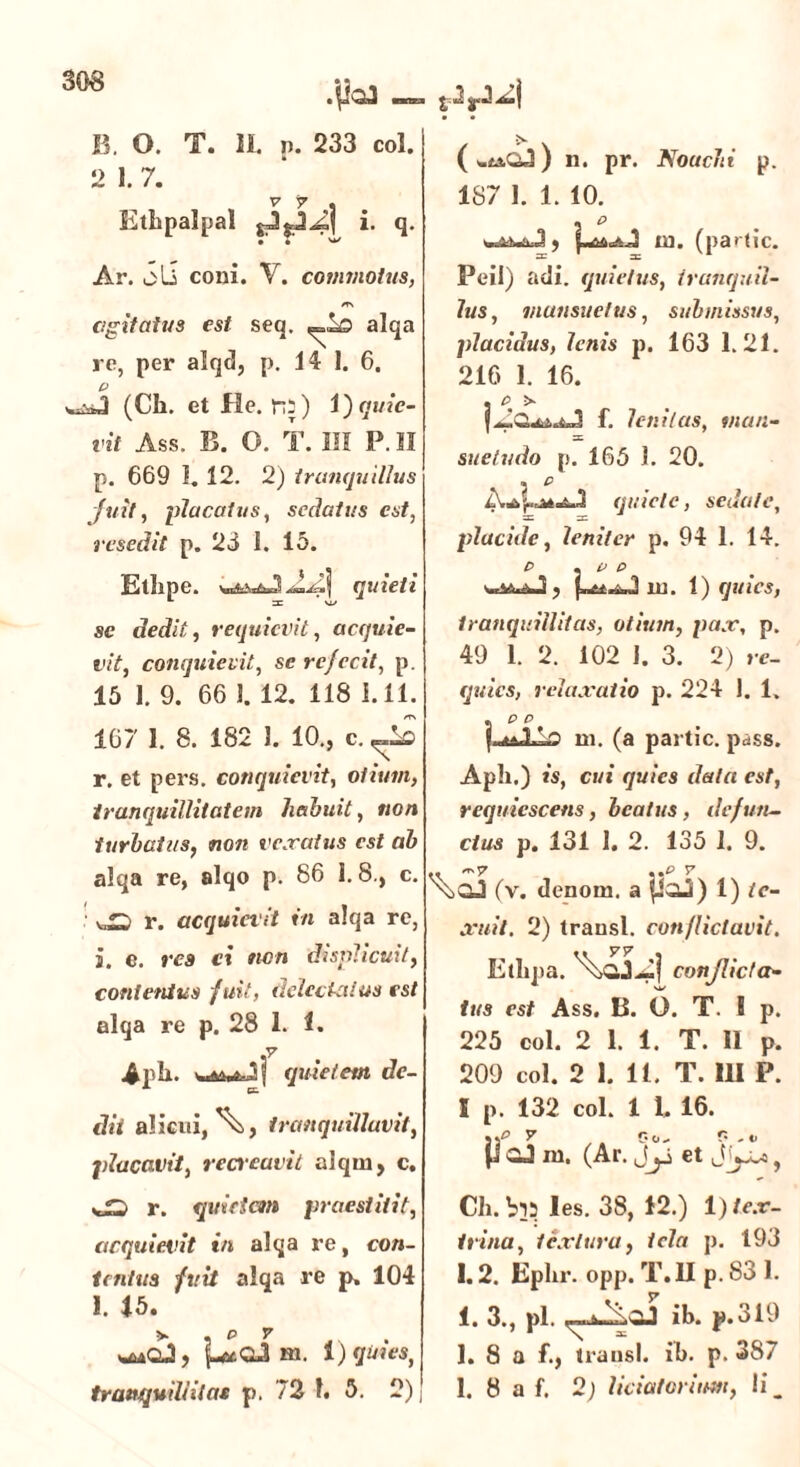 308
ܢܘܠܐ. — ܐܬܢܕܢܕ
B. O. T. II. p. 233 col.
2 l. 7.
Ethpalpal ܐܬܢܕܢܕ i. q.
Ar. ناد coni. V. commotus,
agitatus est seq. ܡܢ alqa
re, per alqd, p. 14 l. 6.
ܢܚ (Ch. et He. נח) 1) quie-
vit Ass. B. O. T. III P. II
p. 669 l. 12. 2) tranquillus
fuit, placatus, sedatus est,
resedit p. 23 l. 15.
Ethpe. ܐܬܬܢܝܚ quieti
se dedit, requievit, acquie-
vit, conquievit, se refecit, p.
15 l. 9. 66 l. 12. 118 l. 11.
167 l. 8. 182 l. 10., c. ܡܢ
r. et pers. conquievit, otium,
tranquillitatem habuit, non
turbatus, non vexatus est ab
alqa re, alqo p. 86 l. 8., c.
ܒ r. acquievit in alqa re,
i. e. res ei non displicuit,
contentus fuit, delectatus est
alqa re p. 28 l. 1.
Aph. ܐܢܝܚ quietem de-
dit alicui, ܠ, tranquillavit,
placavit, recreavit alqm, c.
ܒ r. quietem praestitit,
acquievit in alqa re, con-
tentus fuit alqa re p. 104
l. 15.
ܢܘܚ, ܢܘܚܐ m. 1) quies,
tranquillitas p. 72 l. 5. 2)
(ܢܘܚ) n. pr. Noachi p.
187 l. 1. 10.
ܢܝܚ, ܢܝܚܐ m. (partic.
Peil) adi. quietus, tranquil-
lus, mansuetus, submissus,
placidus, lenis p. 163 l. 21.
216 l. 16.
ܢܝܚܘܬܐ f. lenitas, man-
suetudo p. 165 l. 20.
ܢܝܚܐܝܬ quiete, sedate,
placide, leniter p. 94 l. 14.
ܢܝܚ, ܢܝܚܐ m. 1) quies,
tranquillitas, otium, pax, p.
49 l. 2. 102 l. 3. 2) re-
quies, relaxatio p. 224 l. 1.
ܡܢܚܐ m. (a partic. pass.
Aph.) is, cui quies data est,
requiescens, beatus, defun-
ctus p. 131 l. 2. 135 l. 9.
ܢܘܠ (v. denom. a ܢܘܠܐ) 1) te-
xuit. 2) transl. conflictavit.
Ethpa. ܐܬܢܘܠ conflicta-
tus est Ass. B. O. T. I p.
225 col. 2 l. 1. T. II p.
209 col. 2 l. 11. T. III P.
I p. 132 col. 1 l. 16.
ܢܘܠܐ m. (Ar. نول et منوال,
Ch. נול Ies. 38, 12.) 1) tex-
trina, textura, tela p. 193
l. 2. Ephr. opp. T. II p. 83 l.
1. 3., pl. ܢܘܠܝܢ ib. p. 319
l. 8 a f., transl. ib. p. 387
l. 8 a f. 2) liciatorium, li_